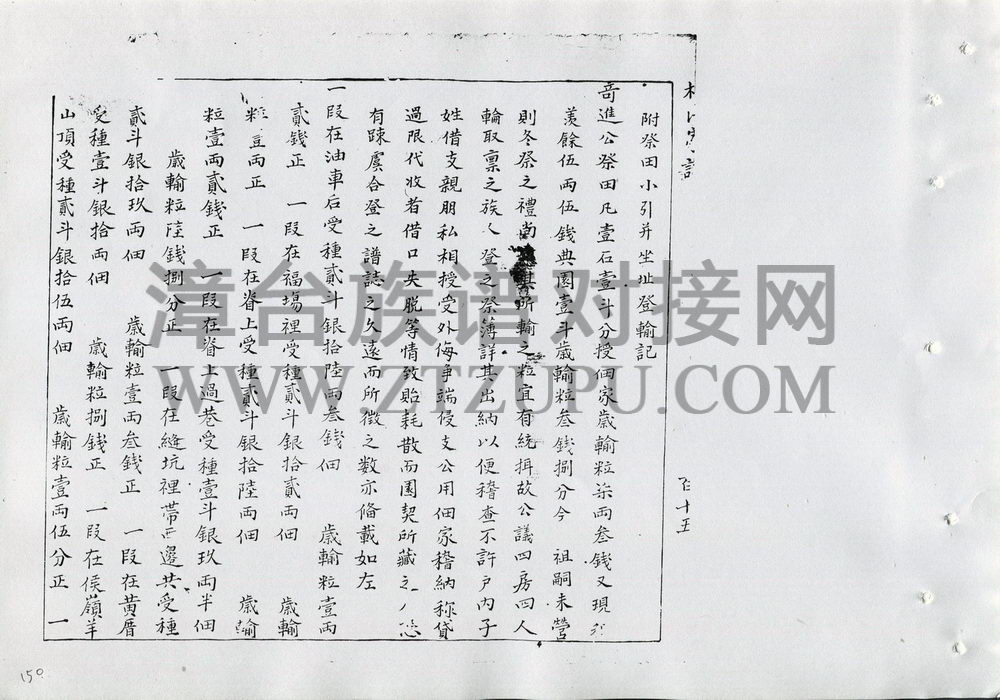 附祭田小引并坐址登輸記
竒進公祭田凡壹石壹斗分授佃家歲輸粒柒両叁銭又現
羨餘伍両伍銭典園壹斗歲輸粒叁銭捌分今 祖嗣未營
則冬祭之禮尚 其所輸之粒宜有統揖故公議四房四人
輪取稟之族人登之祭簿詳其出納以便稽查不許戸内子
姓借支親朋私相授受外侮争端侵支公用佃家稽納称貸
過限代收者借口失脱等情致貽耗散而園契所藏之
有踈虞合登之譜誌之久遠而所徵之数亦俻載如左
一叚在油車后受種貳斗銀拾陸両叁銭佃 歲輸粒壹両
貳銭正 一叚在福塲裡受種貳斗銀拾貳両佃 歲輸
粒壹両正 一叚在眷上受種貳斗銀拾陸両佃 歲輸
粒壹両貳銭正 一叚在眷上過巷受種壹斗銀玖両半佃
歲輸粒陸銭捌分正 一叚在縫坑裡帶西邊共受種
貳斗銀拾玖両佃 歲輸粒壹両叁銭正 一叚在黄厝
受種壹斗銀拾両佃 歲輸粒捌銭正 一叚在侯嶺羊
山頂受種貳斗銀拾伍両佃 歲輸粒壹両伍分正 一
漳台族谱对接网
WWW.ZTZUPU.COM
150